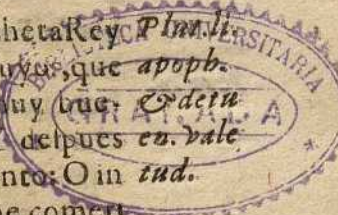 phetaRey Plut.li.
uyus,que apoph.
uy bue- & detu
despues en. vale
nto: O in tud.
be comert
BIBLIOTECA UNIVERSITARIA
GRANADA